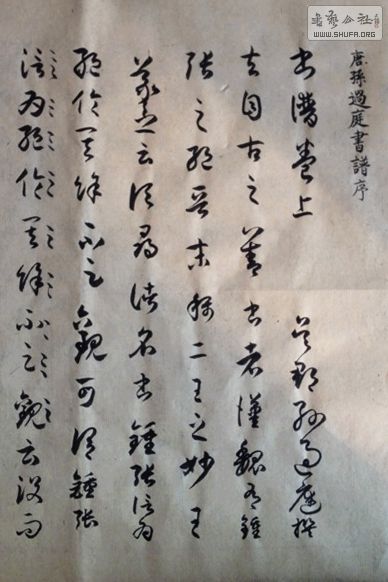 書藝公社
WWW.SHUFA.ORG
唐孫過庭書譜序
書譜卷上 吳郡孫過庭撰
夫自古之善書者漢魏有鍾
張之絕晉末稱二王之妙王
羲之云頃尋諸名書鍾張信為
絕倫其餘不足觀可謂鍾張
信為絕倫其餘不足觀云沒而